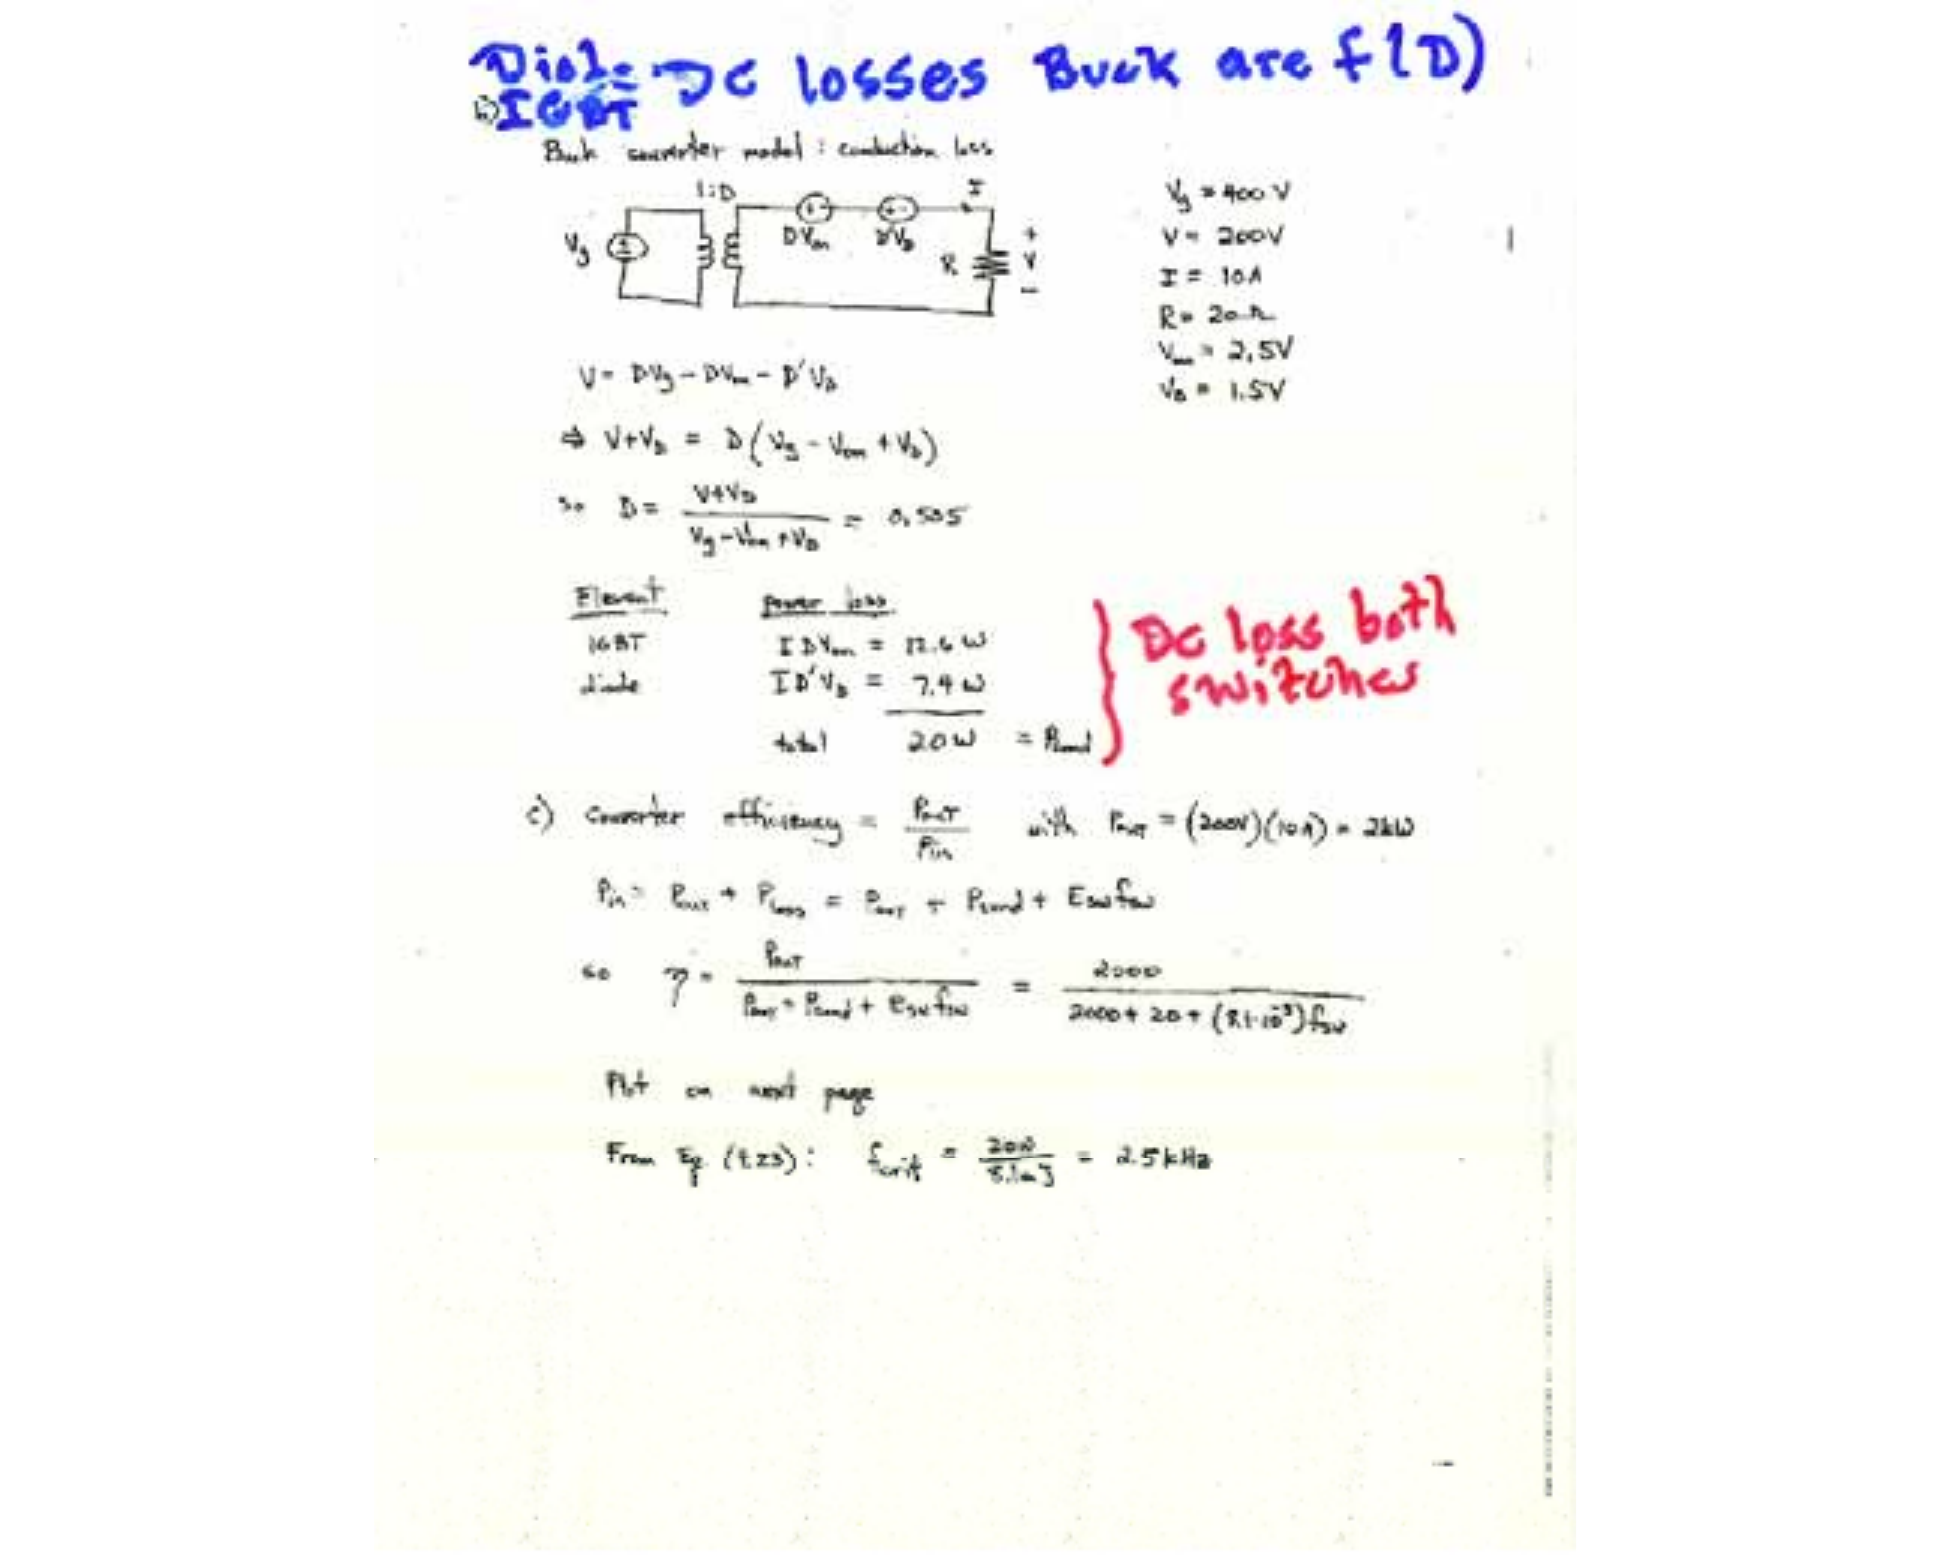 Diode DC losses Buck are f(D)
b) IGBT
Buck converter model : conduction loss
1:D
I
Vg
DVon
D'VD
R
+
V
-
Vg = 400 V
V = 200V
I = 10A
R = 20Ω
Von = 2.5V
VD = 1.5V
V = DVg - DVon - D'VD
⇒ V+VD = D(Vg - Von + VD)
so D = V+VD / Vg-Von+VD = 0.505
Element power loss
IGBT I DVon = 12.6 W
diode I D'VD = 7.4 W
total 20W = Pcond
} DC loss both
switches
c) converter efficiency = Pout / Pin with Pout = (200V)(10A) = 2kW
Pin = Pout + Ploss = Pout + Pcond + Esw fsw
so η = Pout / Pout + Pcond + Esw fsw = 2000 / 2000 + 20 + (8.1·10⁻³) fsw
Plot on next page
From Eq. (4.23): fcrit = 20W / 8.1mJ = 2.5kHz